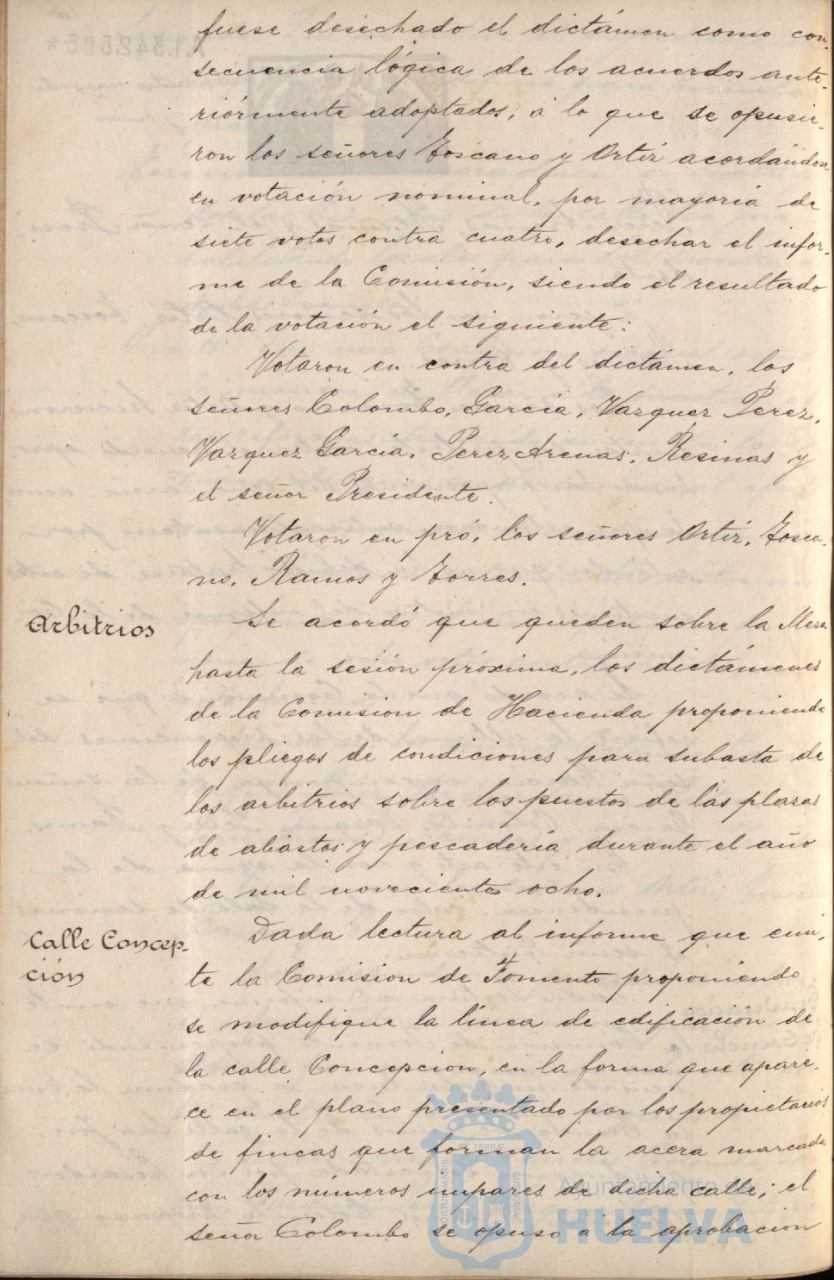 fuese desechado el dictámen como con-
secuencia lógica de los acuerdos ante-
riórmente adoptados; á lo que se opusie-
ron los señores Toscano y Ortíz acordándose
en votación nominal, por mayoría de
siete votos contra cuatro, desechar el infor-
me de la Comisión, siendo el resultado
de la votación el siguiente:
Votaron en contra del dictámen, los
señores Colombo, García, Vazquez Perez,
Vazquez García, Perez Arenas, Resinas y
el señor Presidente.
Votaron en pró, los señores Ortíz, Tosca-
no, Ramos y Torres.
Arbitrios
Se acordó que queden sobre la Mesa
hasta la sesión próxima, los dictámenes
de la Comision de Hacienda proponiendo
los pliegos de condiciones para subasta de
los arbitrios sobre los puestos de las plazas
de abastos y pescadería durante el año
de mil novecientos ocho.
Calle Concep-
ción
Dada lectura al informe que emi-
te la Comision de Fomento proponiendo
se modifique la línea de edificación de
la calle Concepcion, en la forma que apare-
ce en el plano presentado por los propietarios
de fincas que forman la acera marcada
con los números impares de dicha calle; el
señor Colombo se opuso a la aprobacion
Ayuntamiento de
HUELVA